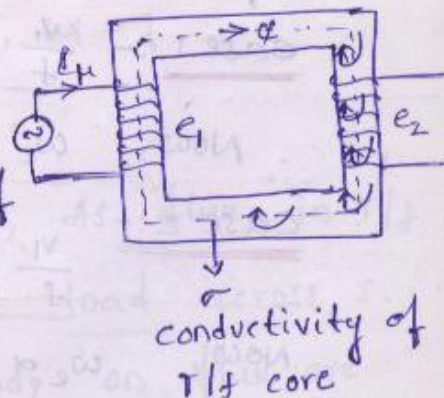 φ
I_μ
e₁
e₂
σ
conductivity of
T/f core